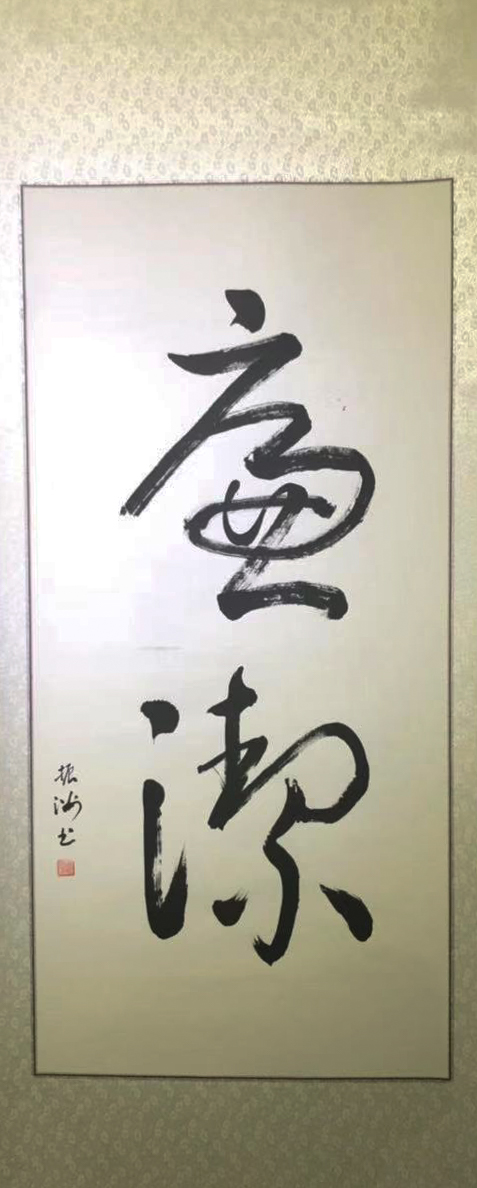 廉潔
振洲书